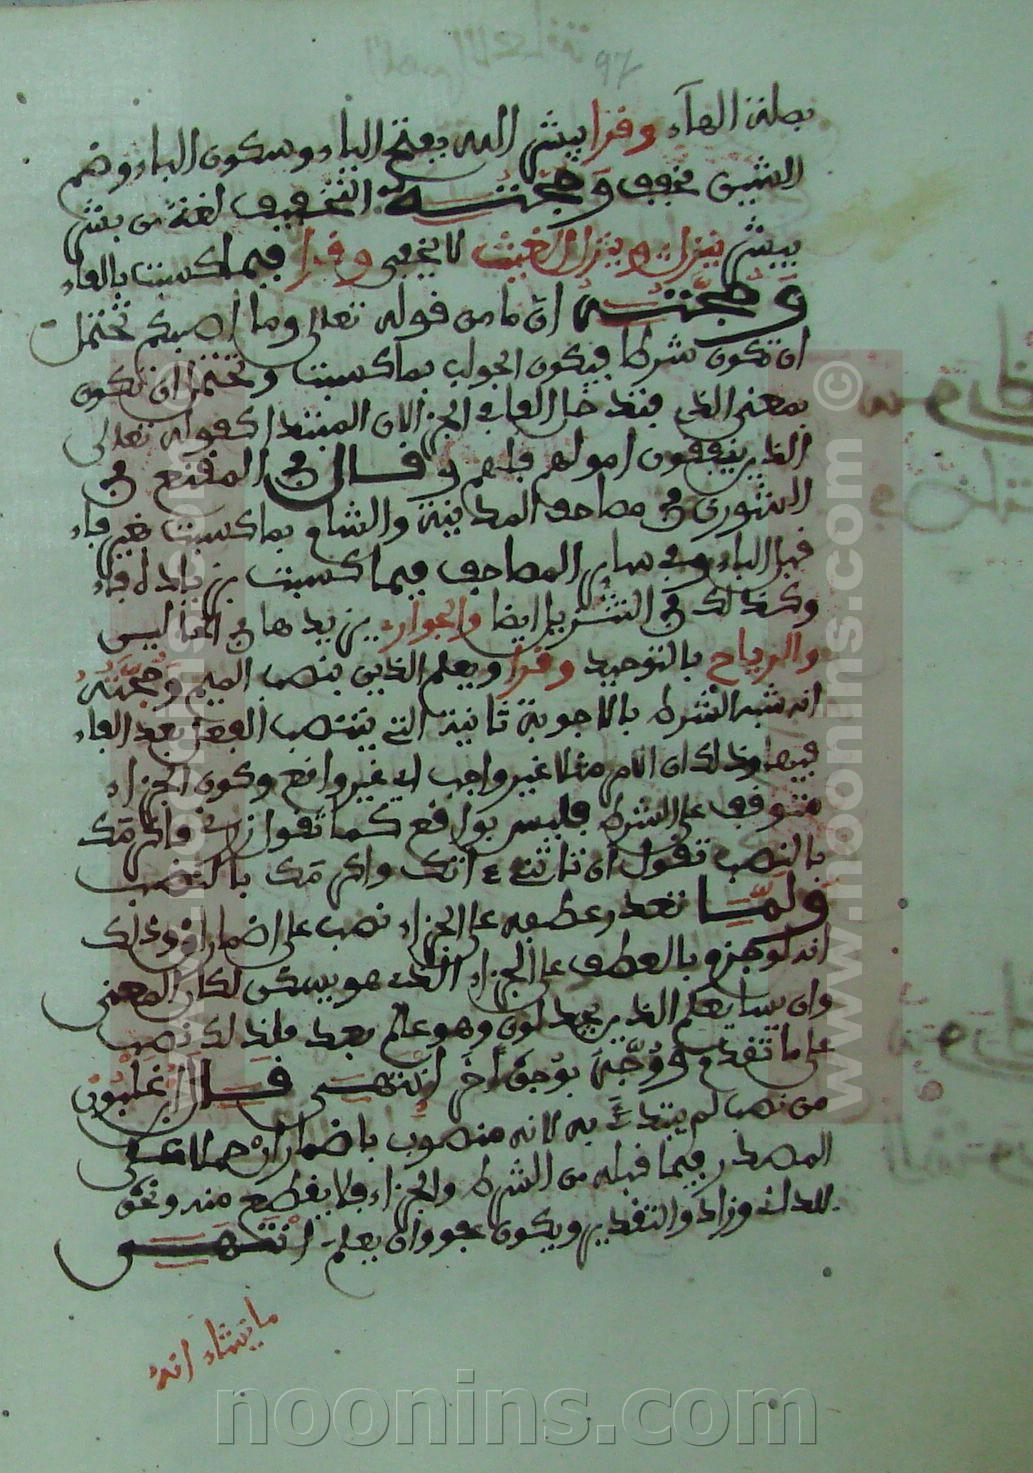 97
بصلة الهاء وقرا يبشر الله بفتح الياء وسكون الباء وضم
الشين مخفف وحجته التخفيف لغة من بشر
يبشر ينزل وينزل الغيث لا يخفى وقرا فيما كسبت بالفاء
وحجته ان ما من قوله تعلى وما اصبكم تحتمل
ان تكون شرطا فيكون الجواب بما كسبت وتحتمل ان تكون
بمعنى الذي فتدخل الفاء في الجزا لان المبتدا كقوله تعالى
الذين ينفقون اموالهم فلهم وقال في المقنع في
الشورى في مصاحف المدينة والشام بما كسبت غير فاء
قبل الباء وفي ساير المصاحف فيما كسبت بزيادة فاء
وكذلك في التنزيل ايضا والجوار يزيدها في الحالين
والرياح بالتوحيد وقرا ويعلم الذين بنصب الميم وحجته
انه شبه الشرط بالاجوبة ثانية التي ينتصب الفعل بعد الفاء
فيها وذلك ان الامر مثلا غير واجب اي غير واقع وكون الجزاء
متوقف على الشرط فليس بواقع كما تقول زرني فاكرمك
بالنصب تقول ان تاتني اتك واكرمك بالنصب
ولما تعذر عطفه على الجزاء نصب على اضمار ان وذلك
انه لو جزم بالعطف على الجزاء الذي هو يسكن لكان المعنى
وان يشا يعلم الذين يجدلون وهو علم بعد فلذلك نصب
على ما تقدم ووجه بوجوه اخر انتهى قال ابن غلبون
من نصب لم يبتدئ به لانه منصوب باضمار ان حملا على
المصدر فيما قبله من الشرط والجزاء فلا يقطع منه ونحوه
للداني وزاد والتقدير ويكون عفو وان يعلم انتهى
ما يشاء انه
www.noonins.com ©
www.noonins.com ©
noonins.com